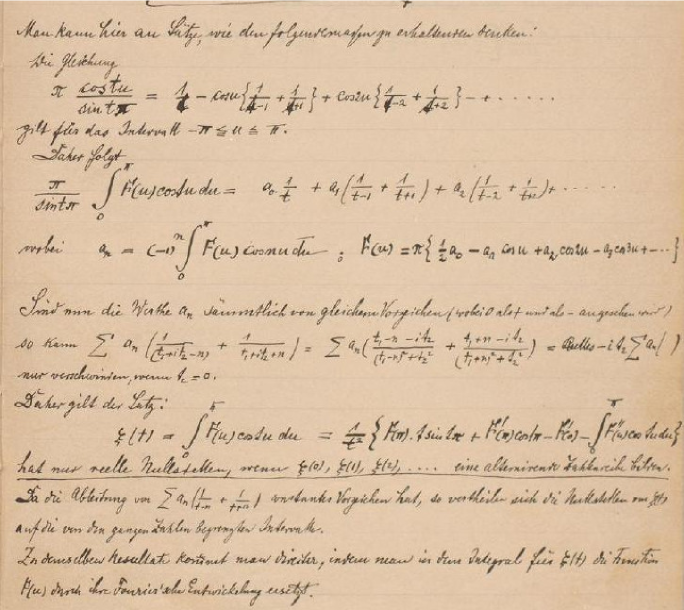 Man kann hier an Sätze, wie den folgendermaßen zu erhaltenden denken:
Die Gleichung
π cos tu / sin tπ = 1/t − cos u {1/(t−1) + 1/(t+1)} + cos 2u {1/(t−2) + 1/(t+2)} − + . . . . . .
gilt für das Intervall −π ≦ u ≦ π.
Daher folgt
π/sin tπ ∫₀^π F(u) cos tu du = a₀ 1/t + a₁ (1/(t−1) + 1/(t+1)) + a₂ (1/(t−2) + 1/(t+2)) + . . . . . .
wobei aₙ = (−1)ⁿ ∫₀^π F(u) cos nu du ; F(u) = π { ½ a₀ − a₁ cos u + a₂ cos 2u − a₃ cos 3u + − ··· }
Sind nun die Werthe aₙ sämmtlich von gleichem Vorzeichen (wobei 0 als + und als − angesehen wird)
so kann Σ aₙ (1/(t₁+it₂−n) + 1/(t₁+it₂+n)) = Σ aₙ ((t₁−n−it₂)/((t₁−n)²+t₂²) + (t₁+n−it₂)/((t₁+n)²+t₂²)) = Reelles − i t₂ Σ aₙ ( )
nur verschwinden, wenn t₂ = 0.
Daher gilt der Satz:
ξ(t) = ∫₀^π F(u) cos tu du = 1/t² { F(π) · t sin tπ + F′(π) cos tπ − F′(0) − ∫₀^π F″(u) cos tu du }
hat nur reelle Nullstellen, wenn ξ(0), ξ(1), ξ(2), . . . . eine alternirende Zahlenreihe bilden.
Da die Ableitung von Σ aₙ (1/(t−n) + 1/(t+n)) constantes Vorzeichen hat, so vertheilen sich die Nullstellen von ξ(t)
auf die von den ganzen Zahlen begrenzten Intervalle.
Zu demselben Resultate kommt man direkter, indem man in dem Integral für ξ(t) die Function
F(u) durch ihre Fourier'sche Entwickelung ersetzt.